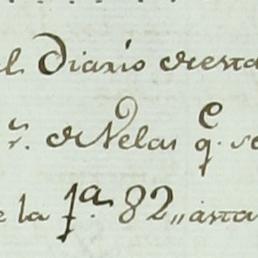 l Diario de esta
r. de Velas q.e se
e la 1.a 82,, asta